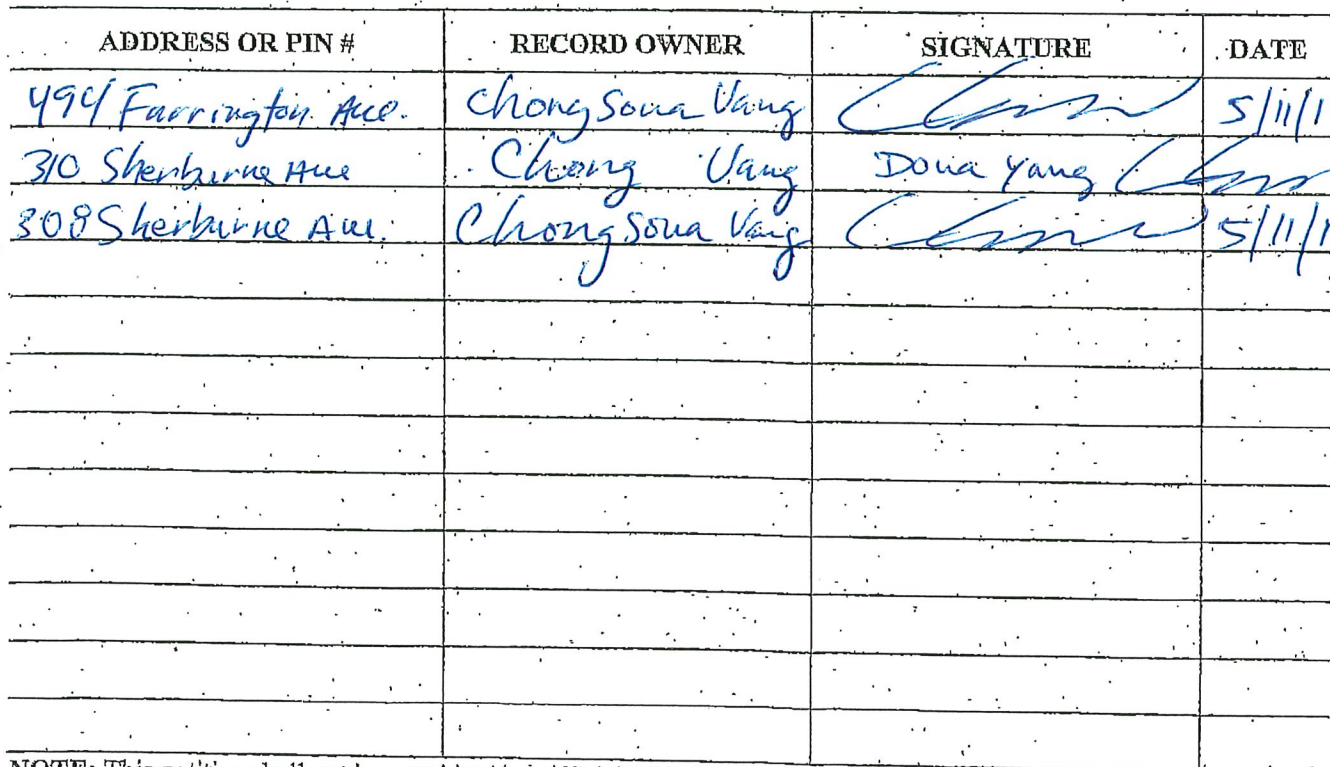 ADDRESS OR PIN # RECORD OWNER SIGNATURE DATE
494 Farrington Ave. Chong Soua Vang 5/11/1
310 Sherburne Ave Chong Vang Doua Yang
308 Sherburne Ave. Chong Soua Vang 5/11/1
NOTE: This petition shall not be